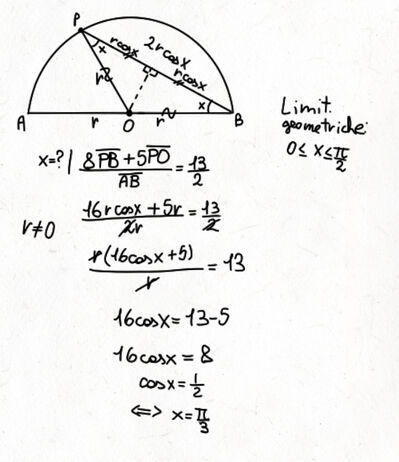 P
x
rcosx
2rcosx
rcosx
r
x
A
r
O
r
B
Limit.
geometriche:
0 ≤ x ≤ π/2
x=? | (8PB + 5PO)/AB = 13/2
r≠0
(16rcosx + 5r)/2r = 13/2
r(16cosx+5)/r = 13
16cosx = 13-5
16cosx = 8
cosx = 1/2
⇔ x = π/3